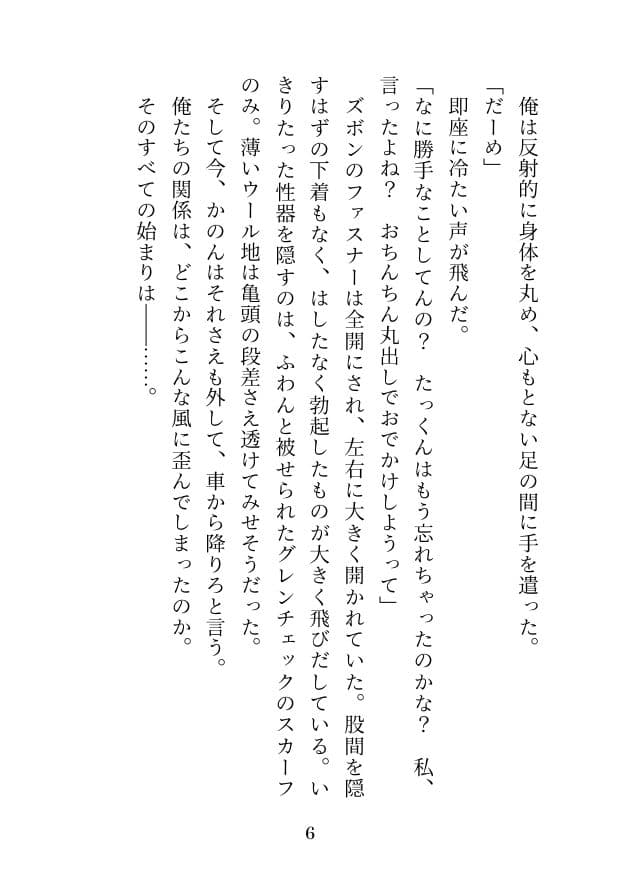 俺は反射的に身体を丸め、心もとない足の間に手を遣った。
「だーめ」
即座に冷たい声が飛んだ。
「なに勝手なことしてんの？　たっくんはもう忘れちゃったのかな？　私、
言ったよね？　おちんちん丸出しでおでかけしようって」
ズボンのファスナーは全開にされ、左右に大きく開かれていた。股間を隠
すはずの下着もなく、はしたなく勃起したものが大きく飛びだしている。い
きりたった性器を隠すのは、ふわんと被せられたグレンチェックのスカーフ
のみ。薄いウール地は亀頭の段差さえ透けてみせそうだった。
そして今、かのんはそれさえも外して、車から降りろと言う。
俺たちの関係は、どこからこんな風に歪んでしまったのか。
そのすべての始まりは――……。
6